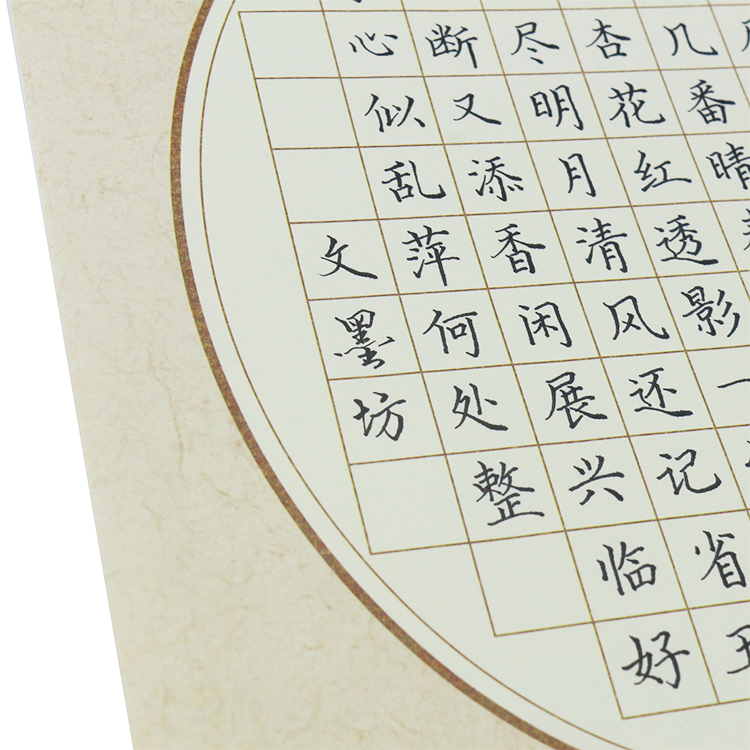 几番晴
杏花红透影
尽明月清风还记省
断又添香闲展兴临好
心似乱萍何处整
文墨坊